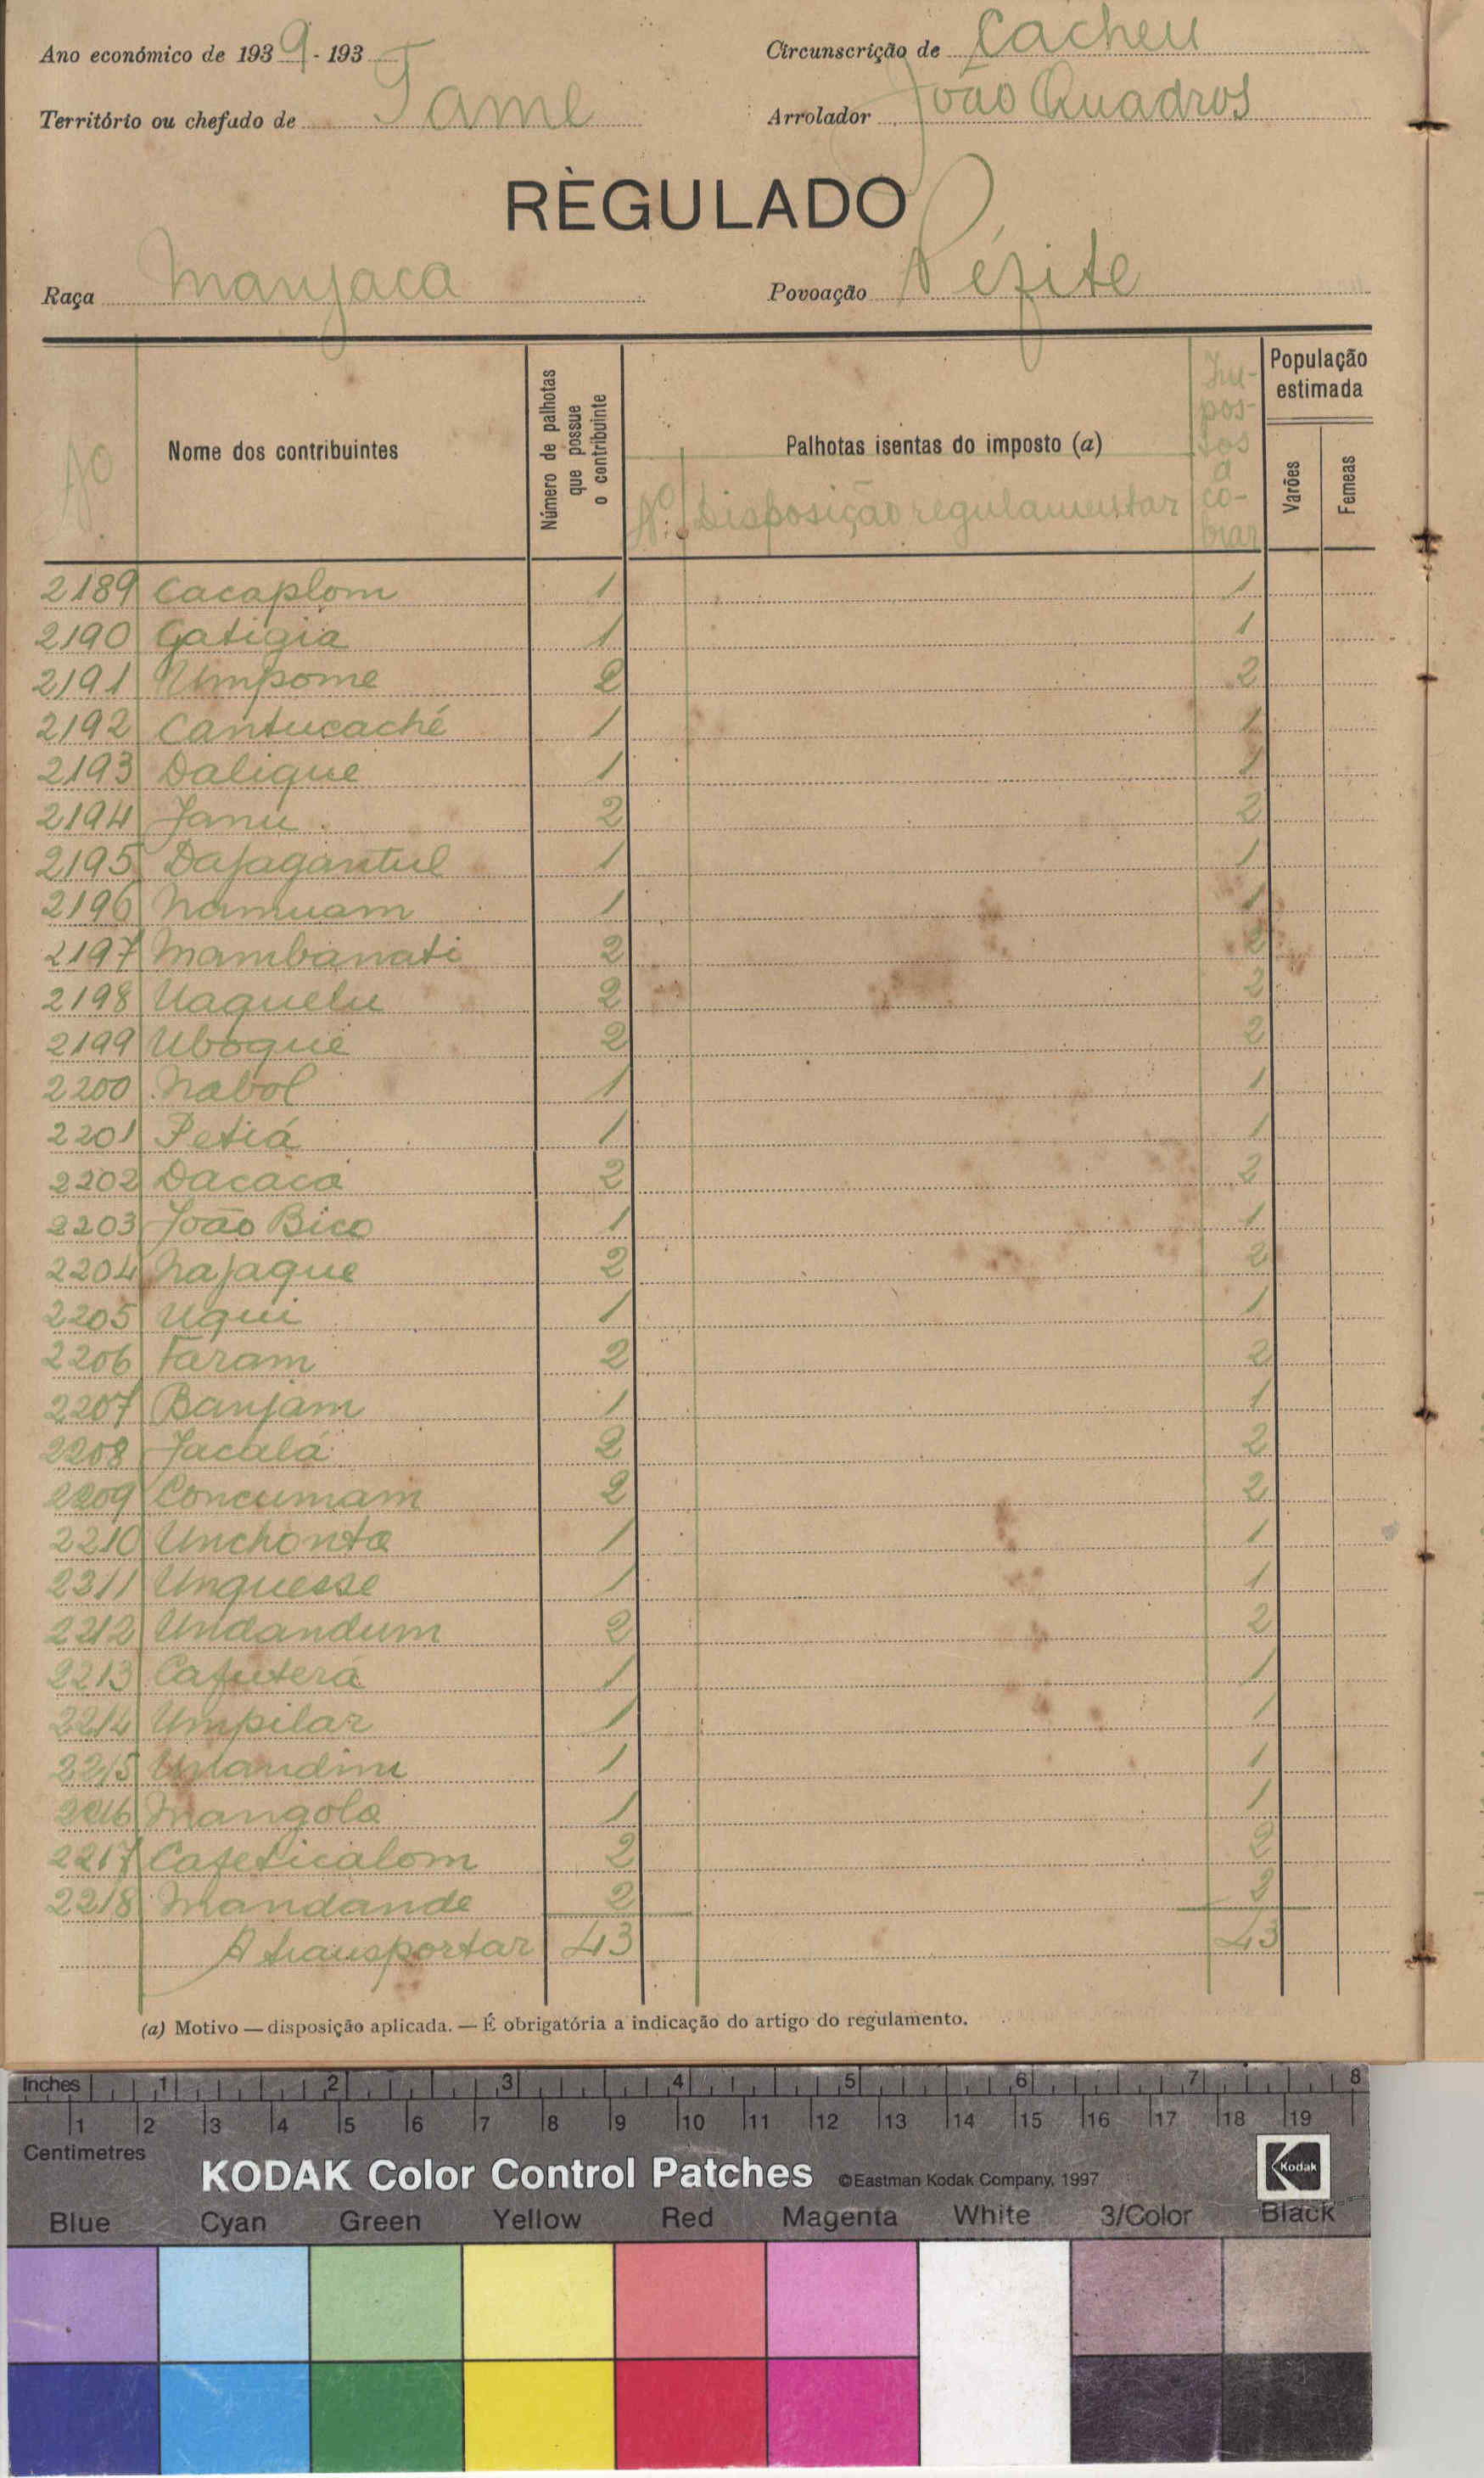 Ano económico de 1939-193
Circunscrição de Cacheu
Território ou chefado de Tame
Arrolador João Quadros
RÈGULADO
Raça Manjaca
Povoação Pézite
Nº
Nome dos contribuintes
Número de palhotas que possue o contribuinte
Palhotas isentas do imposto (a)
Nº Disposição regulamentar
Impostos a cobrar
População estimada
Varões
Femeas
2189 Cacaplom 1 1
2190 Gatigia 1 1
2191 Umpome 2 2
2192 Cantucaché 1 1
2193 Dalique 1 1
2194 Janu 2 2
2195 Dajagantul 1 1
2196 Namuam 1 1
2197 Mambanati 2 2
2198 Uaquelu 2 2
2199 Uboque 2 2
2200 Nabol 1 1
2201 Petiá 1 1
2202 Dacaca 2 2
2203 João Bico 1 1
2204 Najaque 2 2
2205 Uqui 1 1
2206 Faram 2 2
2207 Banjam 1 1
2208 Jacalá 2 2
2209 Concumam 2 2
2210 Unchonta 1 1
2311 Unquesse 1 1
2212 Undandum 2 2
2213 Cafuterá 1 1
2214 Umpilar 1 1
2215 1 1
2216 Mangola 1 1
2217 Cafeticalom 2 2
2218 Mandande 2 2
A transportar 43 43
(a) Motivo — disposição aplicada. — É obrigatória a indicação do artigo do regulamento.
Inches 1 2 3 4 5 6 7 8
1 2 3 4 5 6 7 8 9 10 11 12 13 14 15 16 17 18 19
Centimetres
KODAK Color Control Patches ©Eastman Kodak Company, 1997 Kodak
Blue Cyan Green Yellow Red Magenta White 3/Color Black